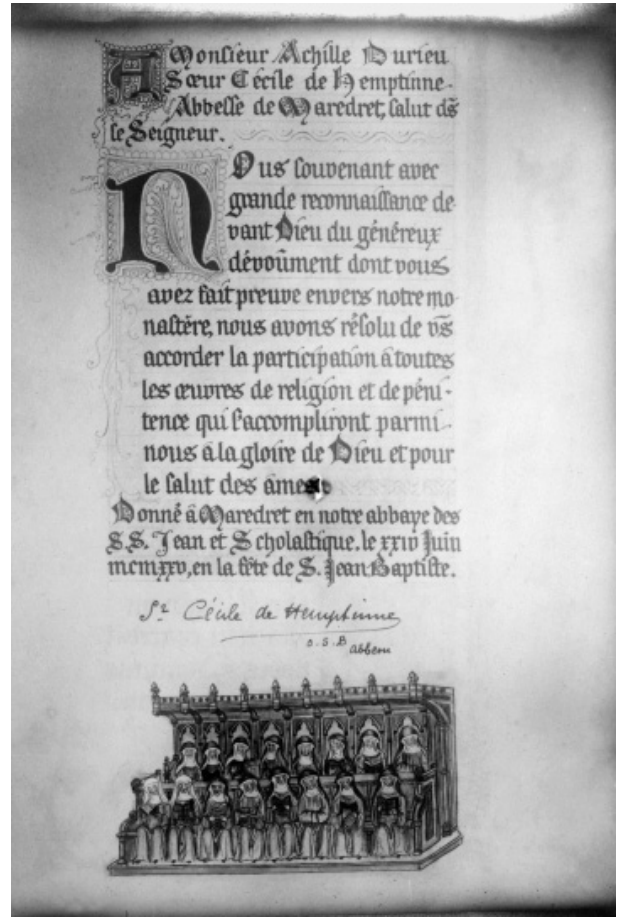 A Monsieur Achille Durieu
Sœur Cécile de Hemptinne.
Abbesse de Maredret, salut ds̄
le Seigneur.
Nous souvenant avec
grande reconnaissance de-
vant Dieu du généreux
dévoûment dont vous
avez fait preuve envers notre mo-
nastère, nous avons résolu de vs̄
accorder la participation à toutes
les œuvres de religion et de péni-
tence qui s'accompliront parmi
nous à la gloire de Dieu et pour
le salut des âmes.
Donné à Maredret en notre abbaye des
S.S. Jean et Scholastique. le xxiv Juin
mcmxxv, en la fête de S. Jean Baptiste.
Sr Cécile de Hemptinne
o.S.B
abbesse